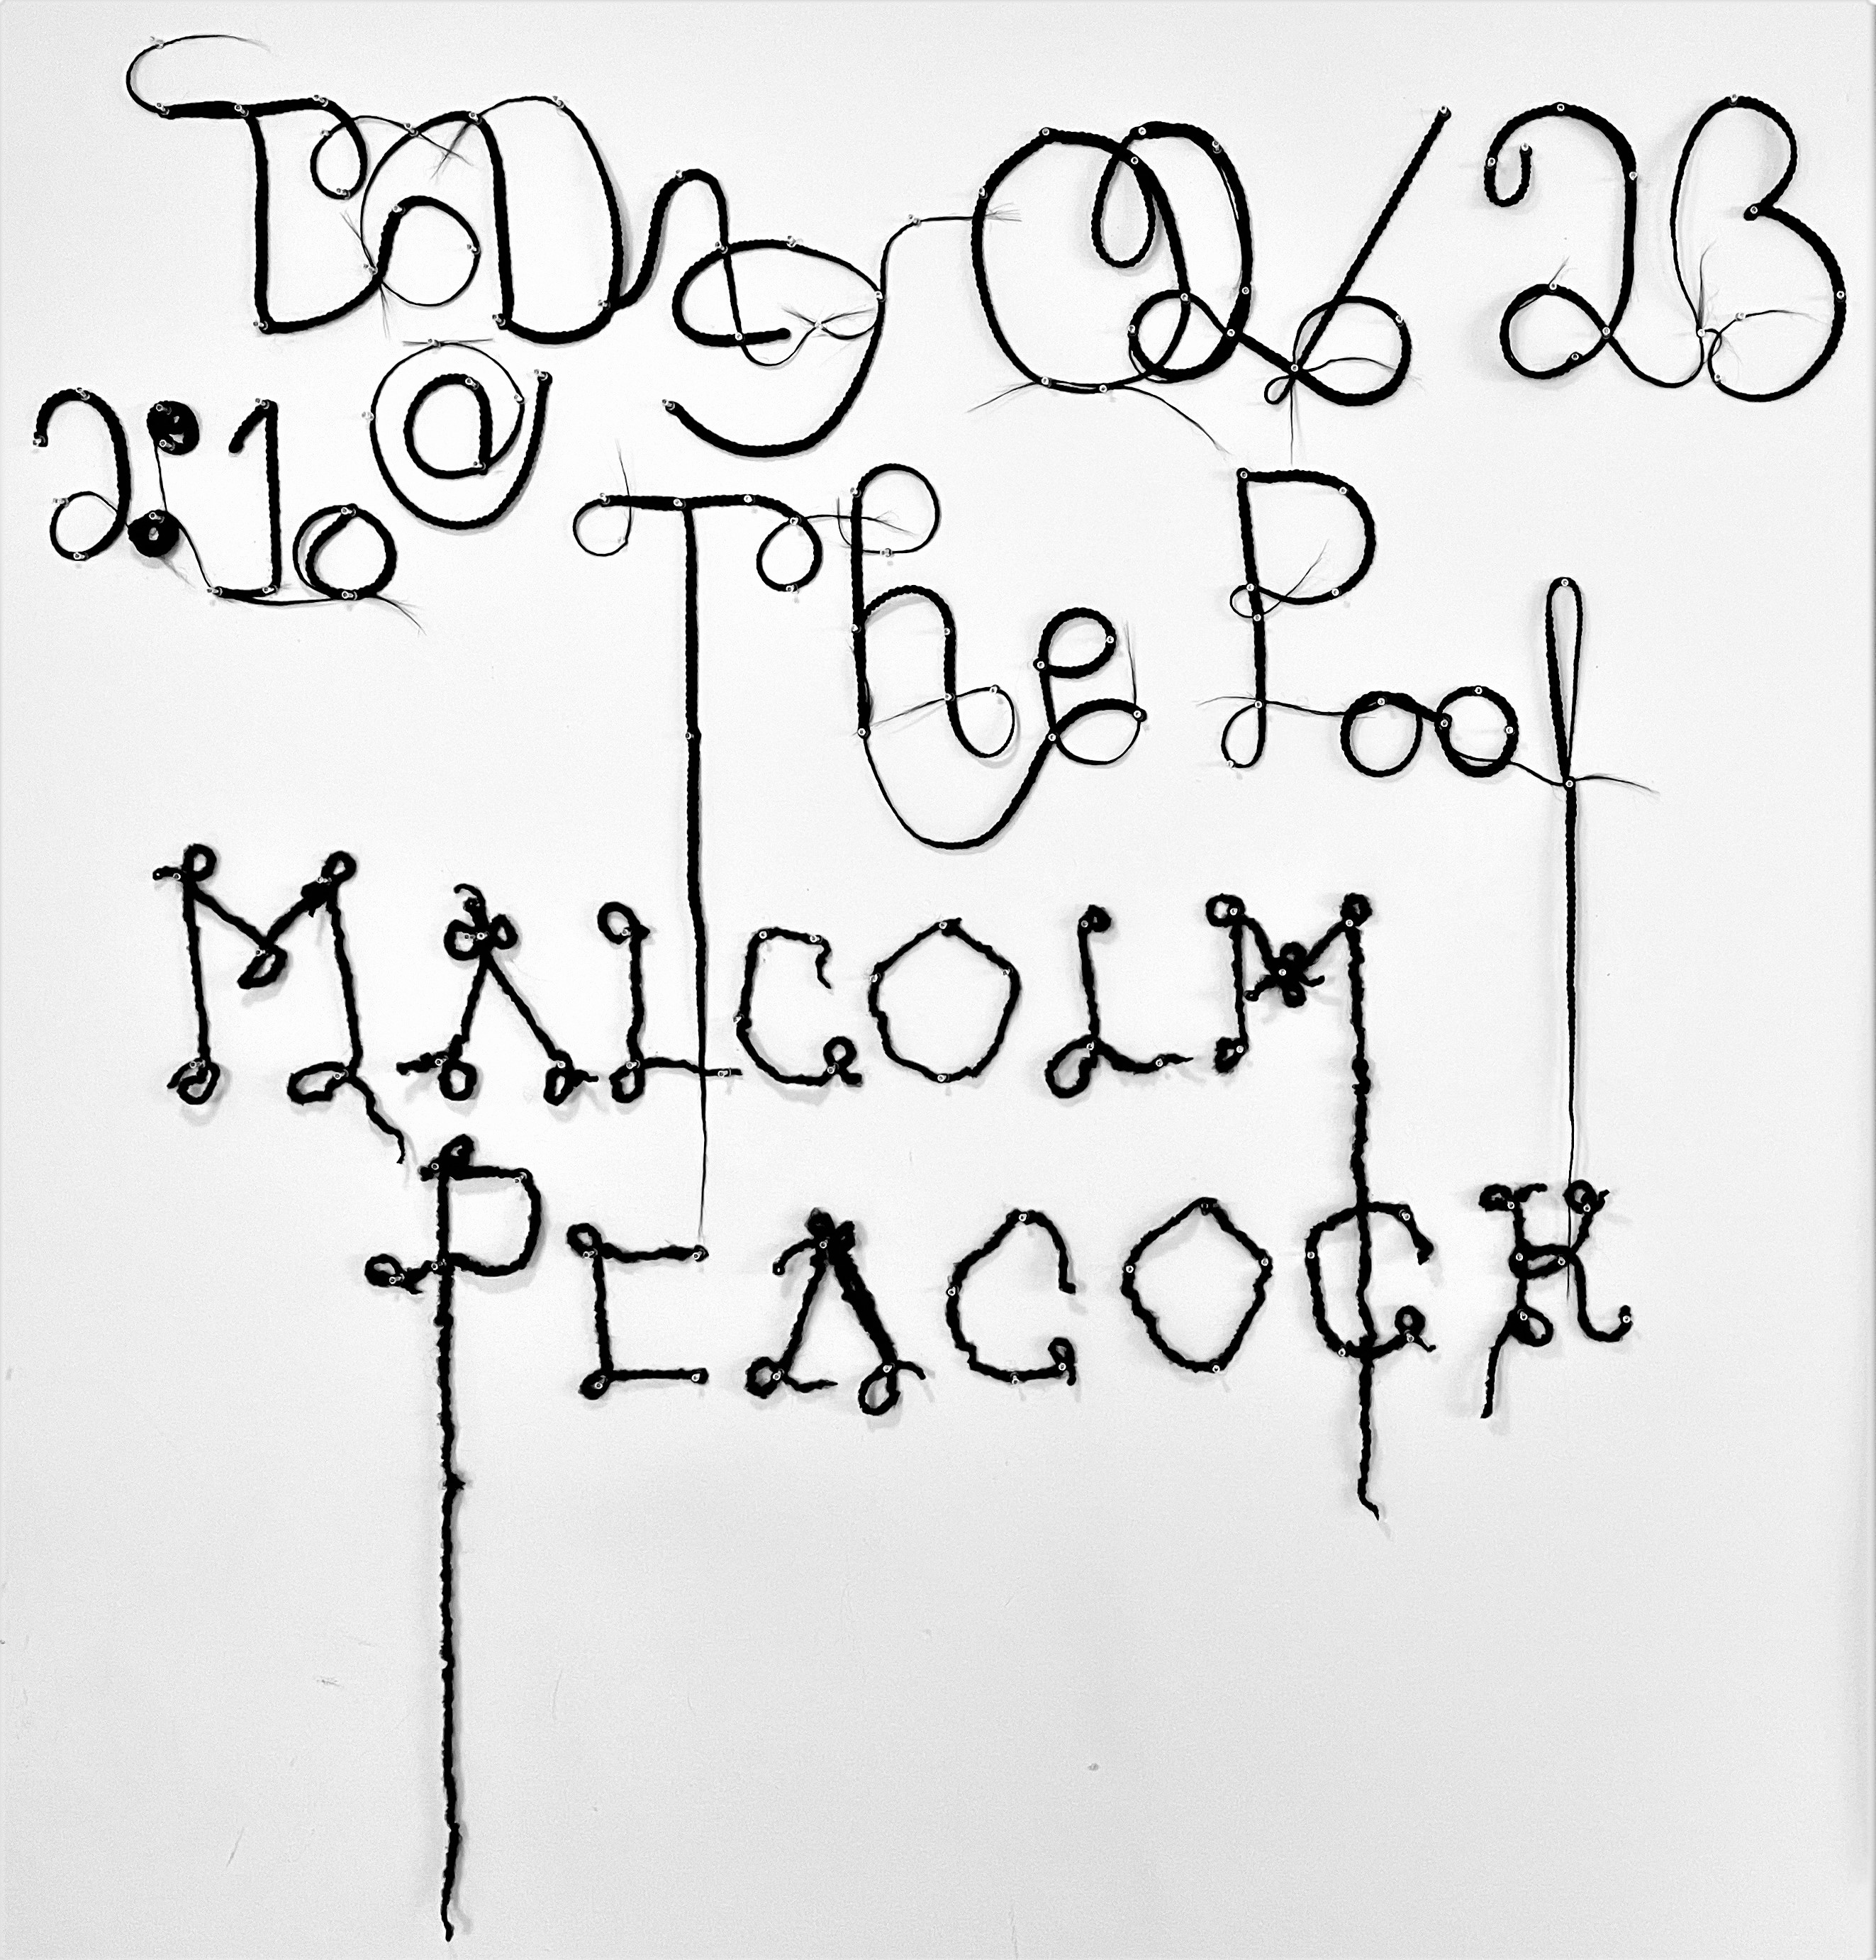 Today 02/23
2:10 @ The Pool
MALCOLM
PEACOCK